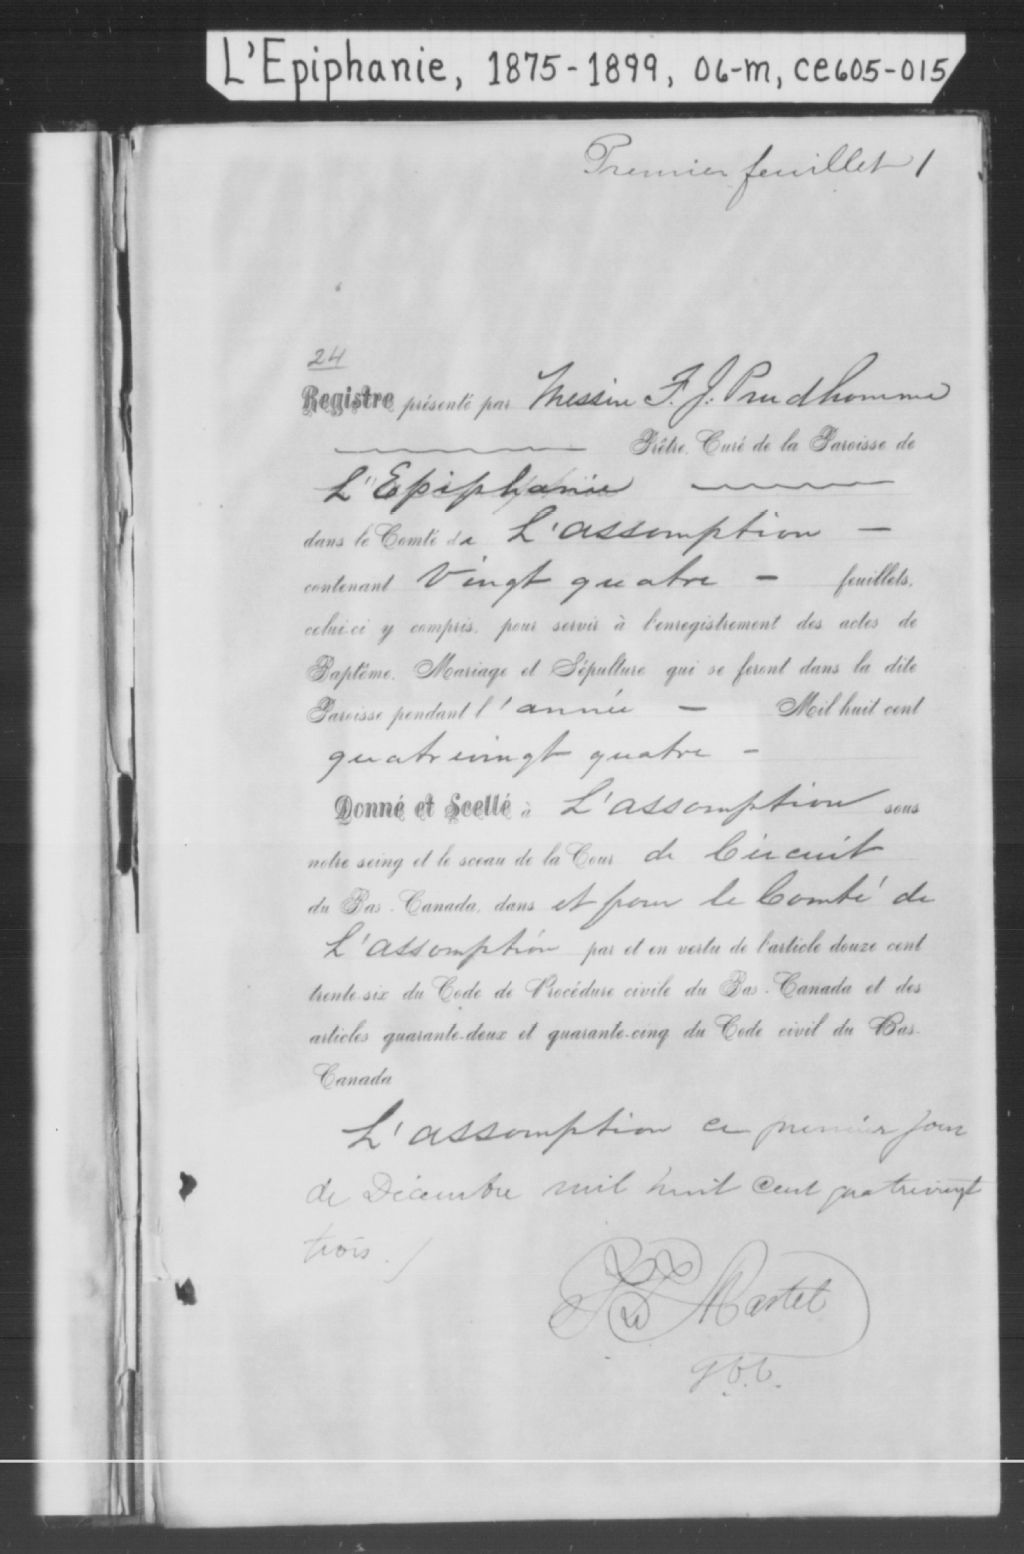 L'Epiphanie, 1875-1899, 06-m, ce605-015
Premier feuillet 1
24
Registre présenté par Messire F. J. Prudhomme
Prêtre, Curé de la Paroisse de
L'Epiphanie
dans le Comté de L'assomption –
contenant Vingt quatre – feuillets,
celui-ci y compris, pour servir à l'enregistrement des actes de
Baptême, Mariage et Sépulture qui se feront dans la dite
Paroisse pendant l'année – Mil huit cent
quatrevingt quatre –
Donné et Scellé à L'assomption sous
notre seing et le sceau de la Cour de Circuit
du Bas-Canada, dans et pour le Comté de
L'assomption par et en vertu de l'article douze cent
trente-six du Code de Procédure civile du Bas-Canada et des
articles quarante-deux et quarante-cinq du Code civil du Bas-
Canada
L'assomption ce premier jour
de Décembre mil huit cent quatrevingt
trois.
Martel